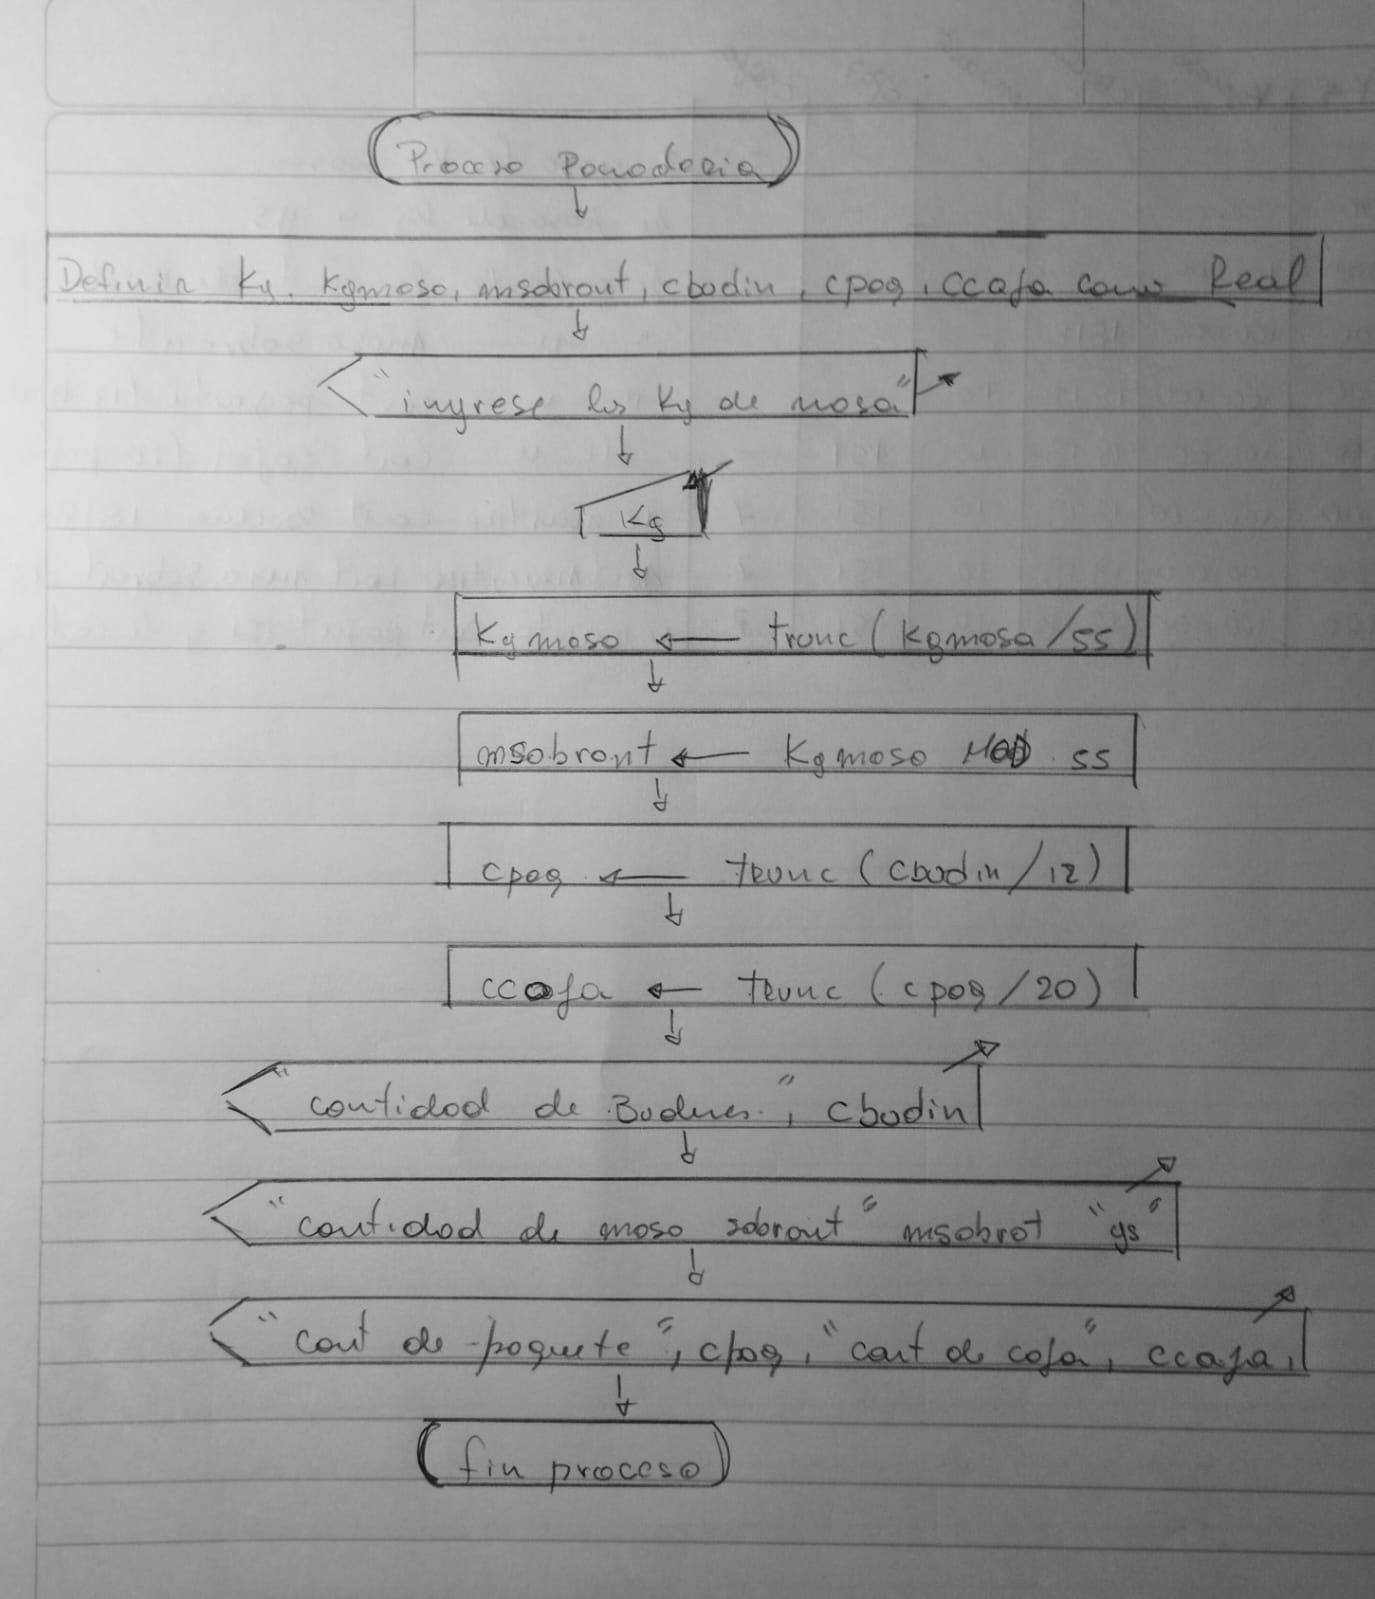 Proceso Panaderia
Definir Kg, Kgmasa, msobrant, cbudin, cpaq, ccaja como Real
"ingrese los Kg de masa"
Kg
Kgmasa ← trunc (Kgmasa/55)
msobrant ← Kgmasa MOD 55
cpaq ← trunc (cbudin/12)
ccaja ← trunc (cpaq/20)
"cantidad de Budines", cbudin
"cantidad de masa sobrant" msobrat "gs"
"cant de paquete", cpaq, "cant de caja", ccaja,
fin proceso